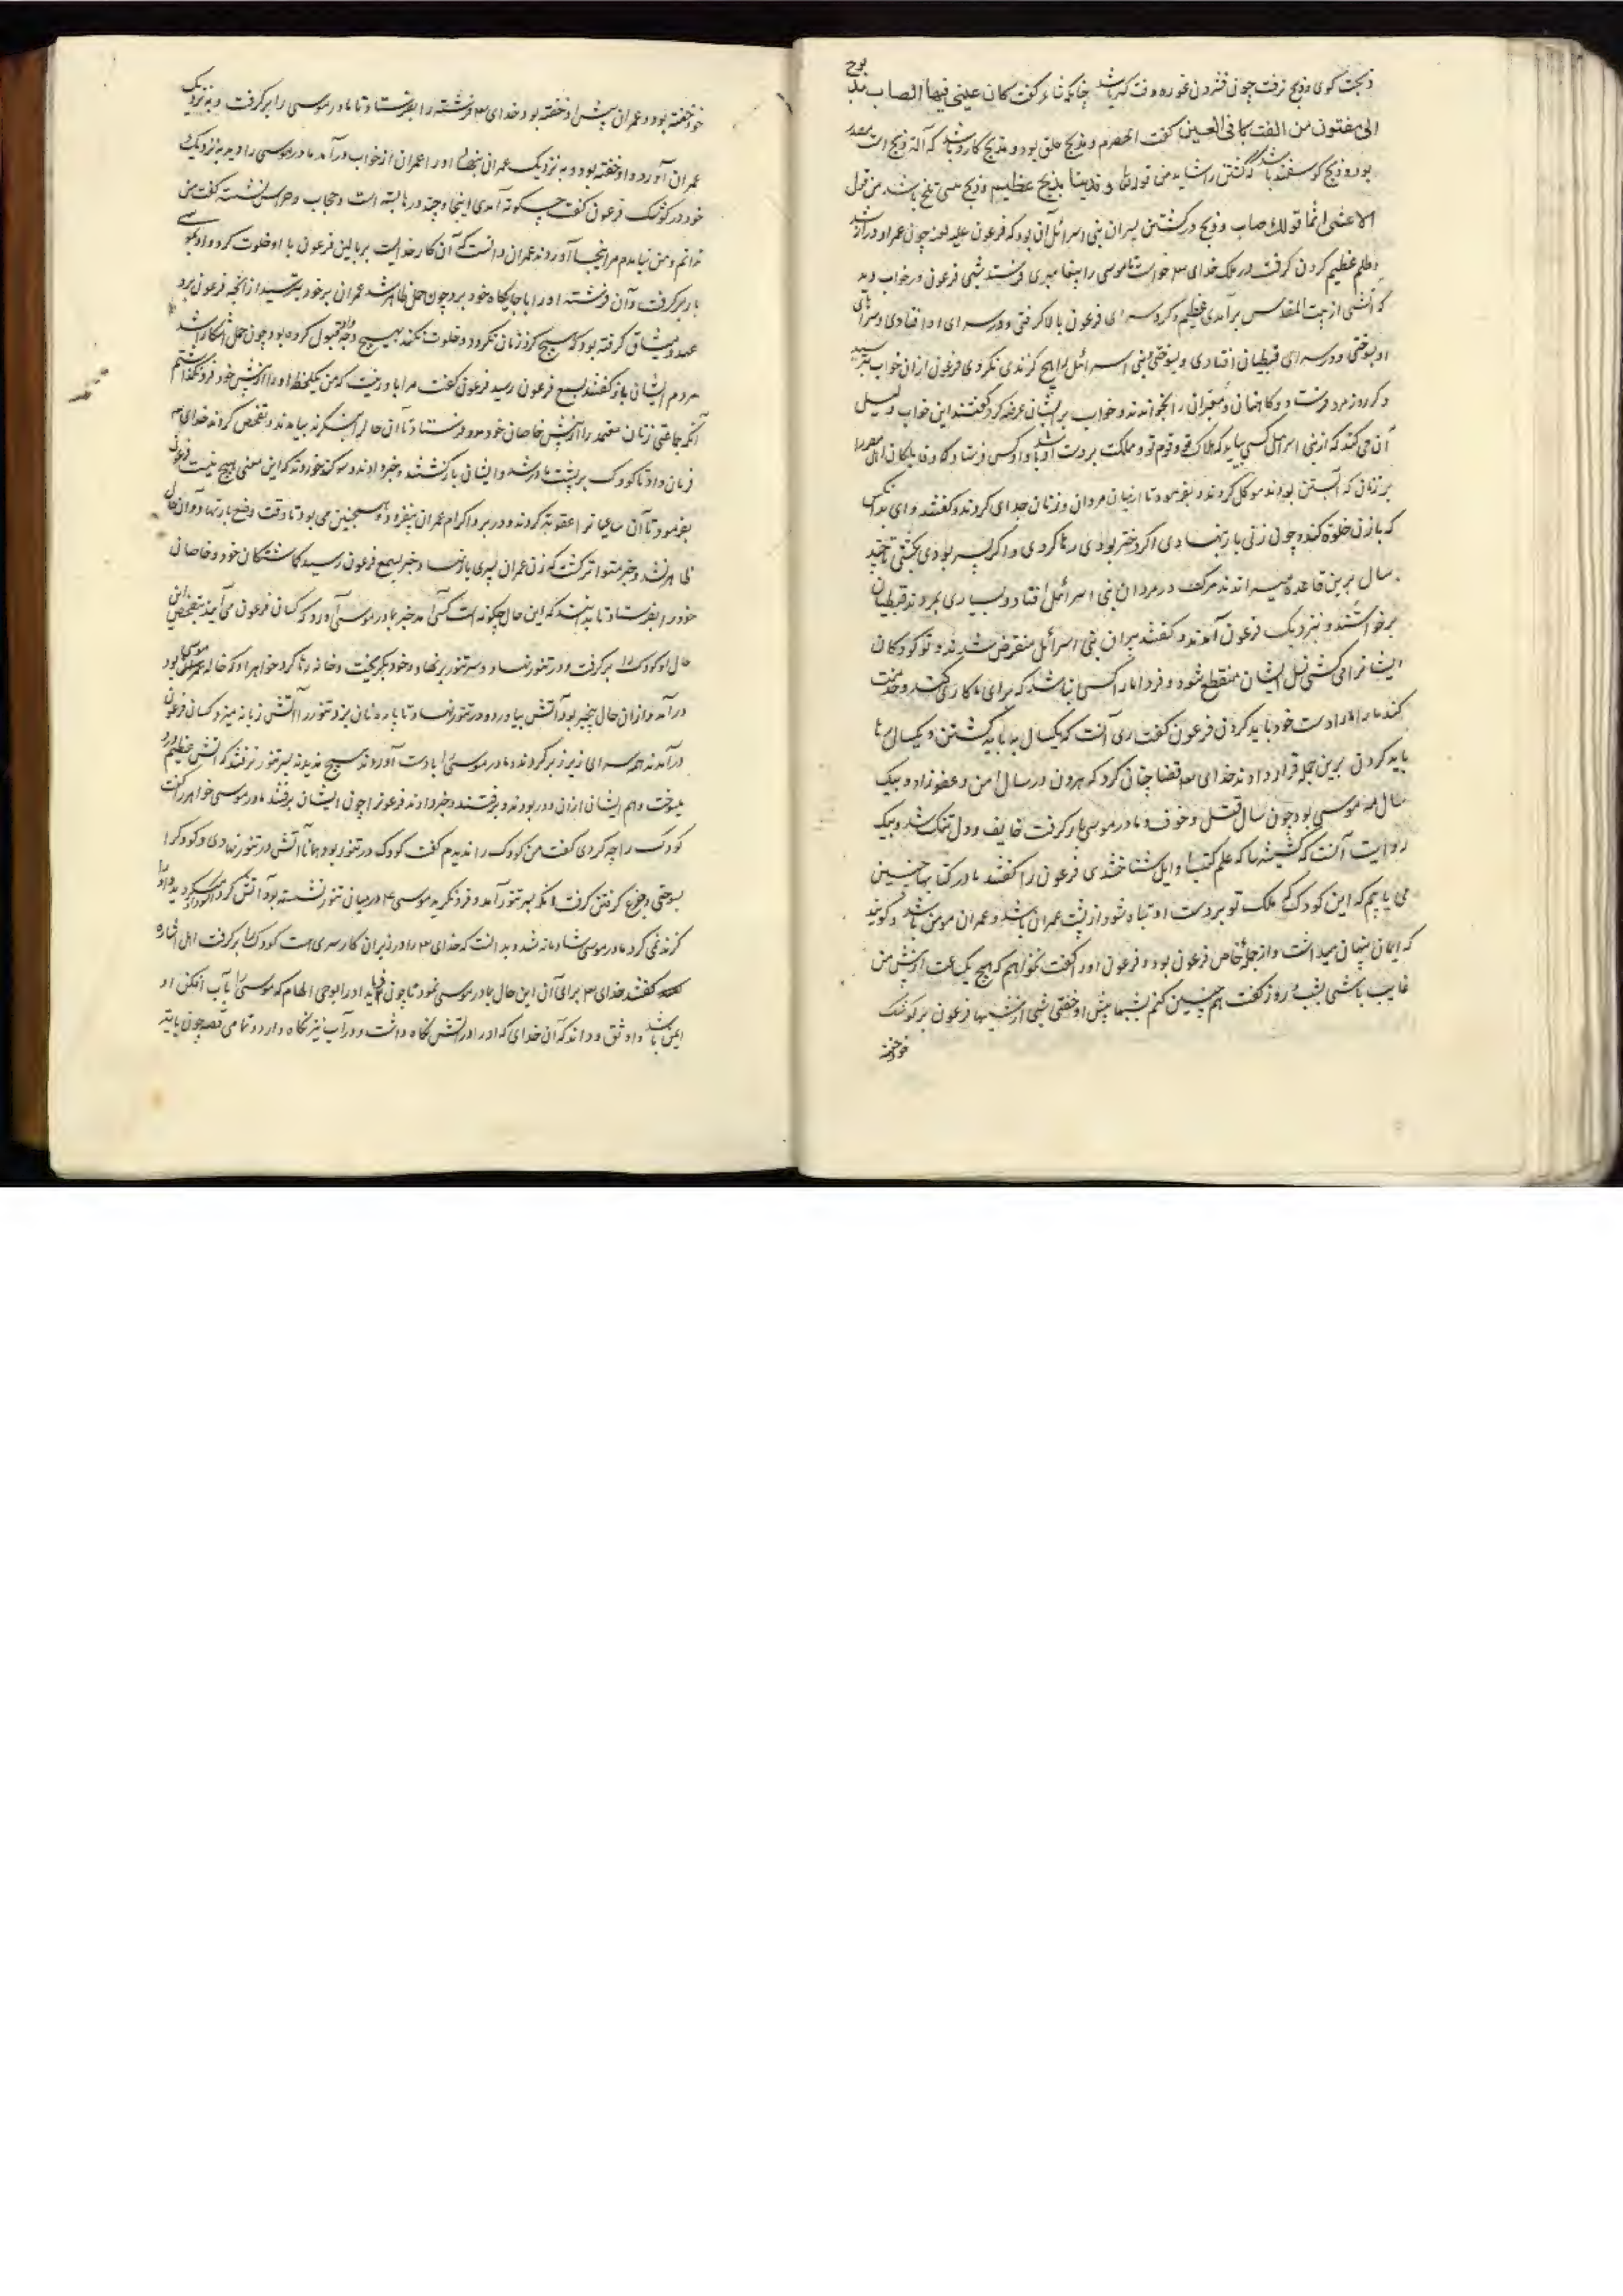 کوی و ذبح نرفت چون
الی مفتون من الفت کانی العین گفت الحصرم و مذبح حلق بود و مذبح کارد باشد که آله ذبح است
بود و ذبح کوسفند باشد کشتن را شاید من قوله تعالی و فدیناه بذبح عظیم و ذبح باشد من قول
الاعشی انما قولک صاب و ذبح در کشتن پسران بنی اسرائیل آن بود که فرعون علیه اللعنه چون عمر او دراز شد
و ظلم عظیم کردن کرفت در ملک خدای خواست تا موسی را به پیغامبری فرستد شبی فرعون در خواب دید
که آتشی از بیت المقدس برآمدی عظیم و کرد سرای فرعون بالا کرفتی و در سرای او افتادی و سرای
او بسوختی و در سرای قبطیان افتادی و بسوختی و بنی اسرائیل را هیچ کزندی نکردی فرعون از آن خواب بترسید
دکر روز مرد فرستاد و کاهنان و معبران را بخواند و خواب بر ایشان عرضه کرد گفتند این خواب دلیل
آن می کند که از بنی اسرائیل کسی بیاید که هلاک تو و قوم تو و مملکت بر دست او باشد او کس فرستاد و قابلکان اهل مصر را
بر زنان که آبستن بودند موکل کردند و بفرمود تا از میان مردان و زنان جدای کردند و گفتند وای بر آنکس
که با زن خلوة کند و چون زنی بار بنهادی اکر دختر بودی رها کردی و اکر پسر بودی بکشتی تا چند
سال برین قاعده میراندند مرک در مردان بنی اسرائیل افتاد و بسیاری بمردند قبطیان
برخواستند و بنزدیک فرعون آمدند و گفتند پیران بنی اسرائیل منقرض شدند و تو کودکان
ایشانرا می کشی نسل ایشان منقطع شود و فردا ما را کسی نباشد که برای ما کاری کند و خدمت
کند ما را بدست خود باید کردن فرعون گفت رای آنست که یکسال بباید کشتن و یکسال رها
باید کردن برین جمله قرار دادند خدای قضا چنان کرد که هرون در سال امن و عفو زاد و بیک
سال به موسی بود چون سال قتل و خوف و مادر موسی بار کرفت خایف و دل تنک شد و بیک
روایت آنست که که علم کتب اوایل شناختندی فرعون را گفتند ما در کتابها چنین
می یابیم که این کودک که ملک تو بر دست او تباه شود از پشت عمران باشد و عمران مومن باشد و کویند
که ایمان پنهان میداشت و از جمله خاص فرعون بود و فرعون او را گفت نخواهم که هیچ یک ساعت از پیش من
غایب باشی بشب و روز گفت هم چنین کنم شبها پیش او خفتی شبی از شبها فرعون بر کوشک
خود خفته
خود خفته بود و عمران پیش او خفته بود خدای فرشته را بفرستاد تا مادر موسی را برکرفت و به نزدیک
عمران آورد و او خفته بود و به نزدیک عمران بنهاد او را عمران از خواب درآمد مادر موسی را دید به نزدیک
خود در کوشک فرعون گفت چکونه آمدی اینجا و چند در ها بسته است و حجاب و حراس نشسته گفت من
ندانم و من نیامدم مرا اینجا آوردند عمران دانست که آن کار خدایست بر بالین فرعون با او خلوت کرد و او بموسی
بار برکرفت و آن فرشته او را با جایکاه خود برد چون حمل ظاهر شد عمران بر خود بترسید از آنچه فرعون برو
عهد و میثاق کرفته بود که هیچ کرد زنان نکردد و خلوت نکند بهیچ وجه قبول کرده بود چون حمل آشکارا شد
مردم ایشان باز گفتند بسمع فرعون رسید فرعون گفت مرا باور نیست که من یکلحظه او را از پیش خود فرو نکذاشتم
آنکه جماعتی زنان معتمد را از پیش خاصان خود فرستاد تا آن حال بنگرند بیامدند و تفحص کردند خدای
فرمان داد تا کودک بر پشت مادر شد و ایشان بازکشتند و خبر دادند و سوکند خوردند که این معنی هیچ نیست فرعون
بفرمود تا آن ساعیانرا عقوبة کردند و در بر و اکرام عمران بیفزود و همچنین می بود تا وقت وضع بار بنهاد و آن حال
ظاهر شد و خبر متواتر کشت که زن عمران پسری بار نهاد و خبر بسمع فرعون رسید کماشتکان خود و خاصان
خود را بفرستاد تا بدانند که این حال چکونه است کسی آمد خبر بمادر موسی آورد که کسان فرعون می آیند بتفحص این
حال او کودک را برکرفت و در تنور نهاد و سر تنور بر نهاد و خود بکریخت و خانه رها کرد خواهر او که خاله موسی بود
درآمد و از آن حال بیخبر بود آتش بیاورد و در تنور نهاد تا پاره نان بزد تنور را آتش زبانه میزد و کسان فرعون
درآمدند همه سرای زیر و زبر کردند مادر موسی را بدست آوردند هیچ ندیدند بسر تنور نرفتند که آتش عظیم درو
میسوخت و هم ایشان از آن دور بودند و برفتند و خبر دادند فرعونرا چون ایشان برفتند مادر موسی خواهر را گفت
کودک را چه کردی گفت من کودک را ندیدم گفت کودک در تنور بود و همانا آتش در تنور نهادی و کودکرا
بسوختی و جزع کرفتن کرفت آنکه بسر تنور آمد و فرو نکرید موسی در میان تنور نشسته بود آتش کرد او میکردید و او را
کزند نمی کرد مادر موسی شادمانه شد و بدانست که خدای را در زیر آن کار سری هست کودک را برکرفت اهل اشاره
گفتند خدای برای آن این حال بمادر موسی نمود تا چون فرماید او را بوحی الهام که موسی را به آب افکن او
ایمن باشد و واثق و داند که آن خدای که او را در آتش نکاه داشت و در آب نیز نکاه دارد و تمامی قصه چون بایتد